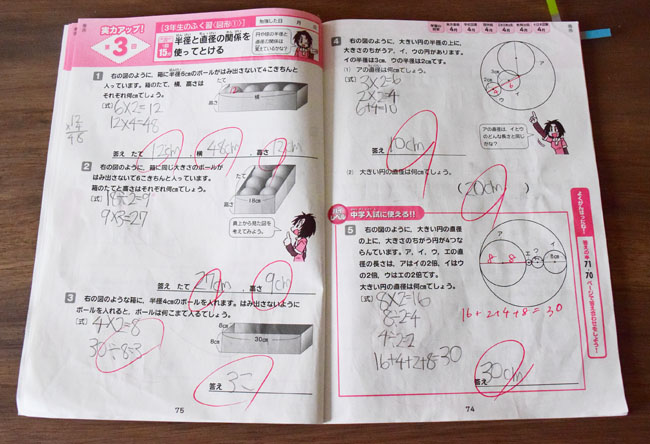 実力アップ!
第3回
[3年生のふく習〈図形①〉]
半径と直径の関係を
使ってとける
15分
勉強した日 月 日
円や球の半径と直
径の関係は
覚えているかな?
1 右の図のように、箱に半径6cmのボールがはみ出さないで4こきちんと
入っています。箱のたて、横、高さは
それぞれ何cmでしょう。
〔式〕 6×2=12
12×4=48
12
×4
48
たて
横
高さ
答え たて 12cm , 横 48cm , 高さ 12cm
2 右の図のように、箱に同じ大きさのボールが
はみ出さないで6こきちんと入っています。
箱のたてと高さはそれぞれ何cmでしょう。
〔式〕 18÷2=9
9×3=27
たて
高さ
18cm
真上から見た図を
考えてみよう。
答え たて 27cm , 高さ 9cm
3 右の図のような箱に、半径4cmのボールを入れます。はみ出さないように
ボールを入れると、ボールは何こまで入るでしょう。
〔式〕 4×2=8
30÷8=3
8cm
8cm
30cm
答え 3こ
75
4 右の図のように、大きい円の半径の上に、
大きさのちがうア、イ、ウの円があります。
イの半径は3cm、ウの半径は2cmです。
(1) アの直径は何cmでしょう。
〔式〕 3×2=6
2×2=4
6+4=10
ア
3cm
2cm
イ
ウ
6
4
アの直径は、イとウ
のどんな長さと同じ
かな?
答え 10cm
(2) 大きい円の直径は何cmでしょう。
( 20cm )
中学入試に使える!!
5 右の図のように、大きい円の直径
の上に、大きさのちがう円が4つな
らんでいます。ア、イ、ウ、エの直
径の長さは、アはイの2倍、イはウ
の2倍、ウはエの2倍です。
大きい円の直径は何cmでしょう。
〔式〕 8×2=16
8÷2=4
4÷2=2
16+4+2+8=30
ア
エ
ウ
イ
8
8
8cm
16+2+4+8=30
答え 30cm
よくがんばったね!
答えは
71
70
ページで答え合わせをしよう!
74